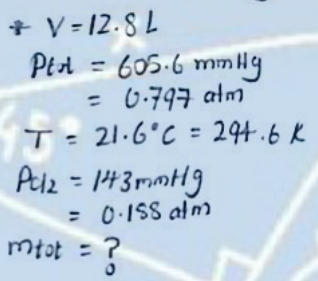 * V = 12.8 L
Ptot = 605.6 mmHg
= 0.797 atm
T = 21.6°C = 294.6 K
Pcl2 = 143mmHg
= 0.188 atm
mtot = ?